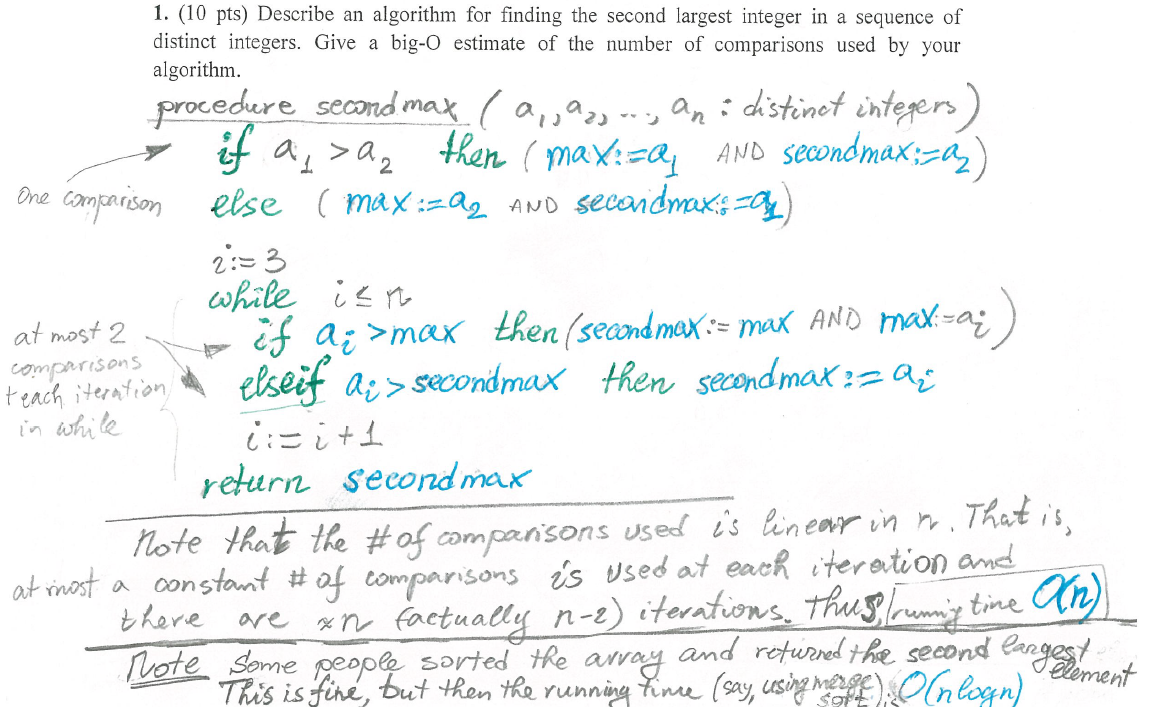 1. (10 pts) Describe an algorithm for finding the second largest integer in a sequence of
distinct integers. Give a big-O estimate of the number of comparisons used by your
algorithm.
procedure secondmax ( a₁, a₂, ..., aₙ : distinct integers)
if a₁ > a₂ then ( max:=a₁ AND secondmax:=a₂)
One comparison
else ( max:=a₂ AND secondmax:=a₁)
i:= 3
while i ≤ n
if aᵢ > max then (secondmax:= max AND max:=aᵢ)
elseif aᵢ > secondmax then secondmax:= aᵢ
i:= i+1
at most 2
comparisons
each iteration
in while
return secondmax
Note that the # of comparisons used is linear in n. That is,
at most a constant # of comparisons is used at each iteration and
there are ≈n (actually n-2) iterations. Thus, running time O(n)
Note Some people sorted the array and returned the second largest element
This is fine, but then the running time (say, using merge sort) is O(n logn)